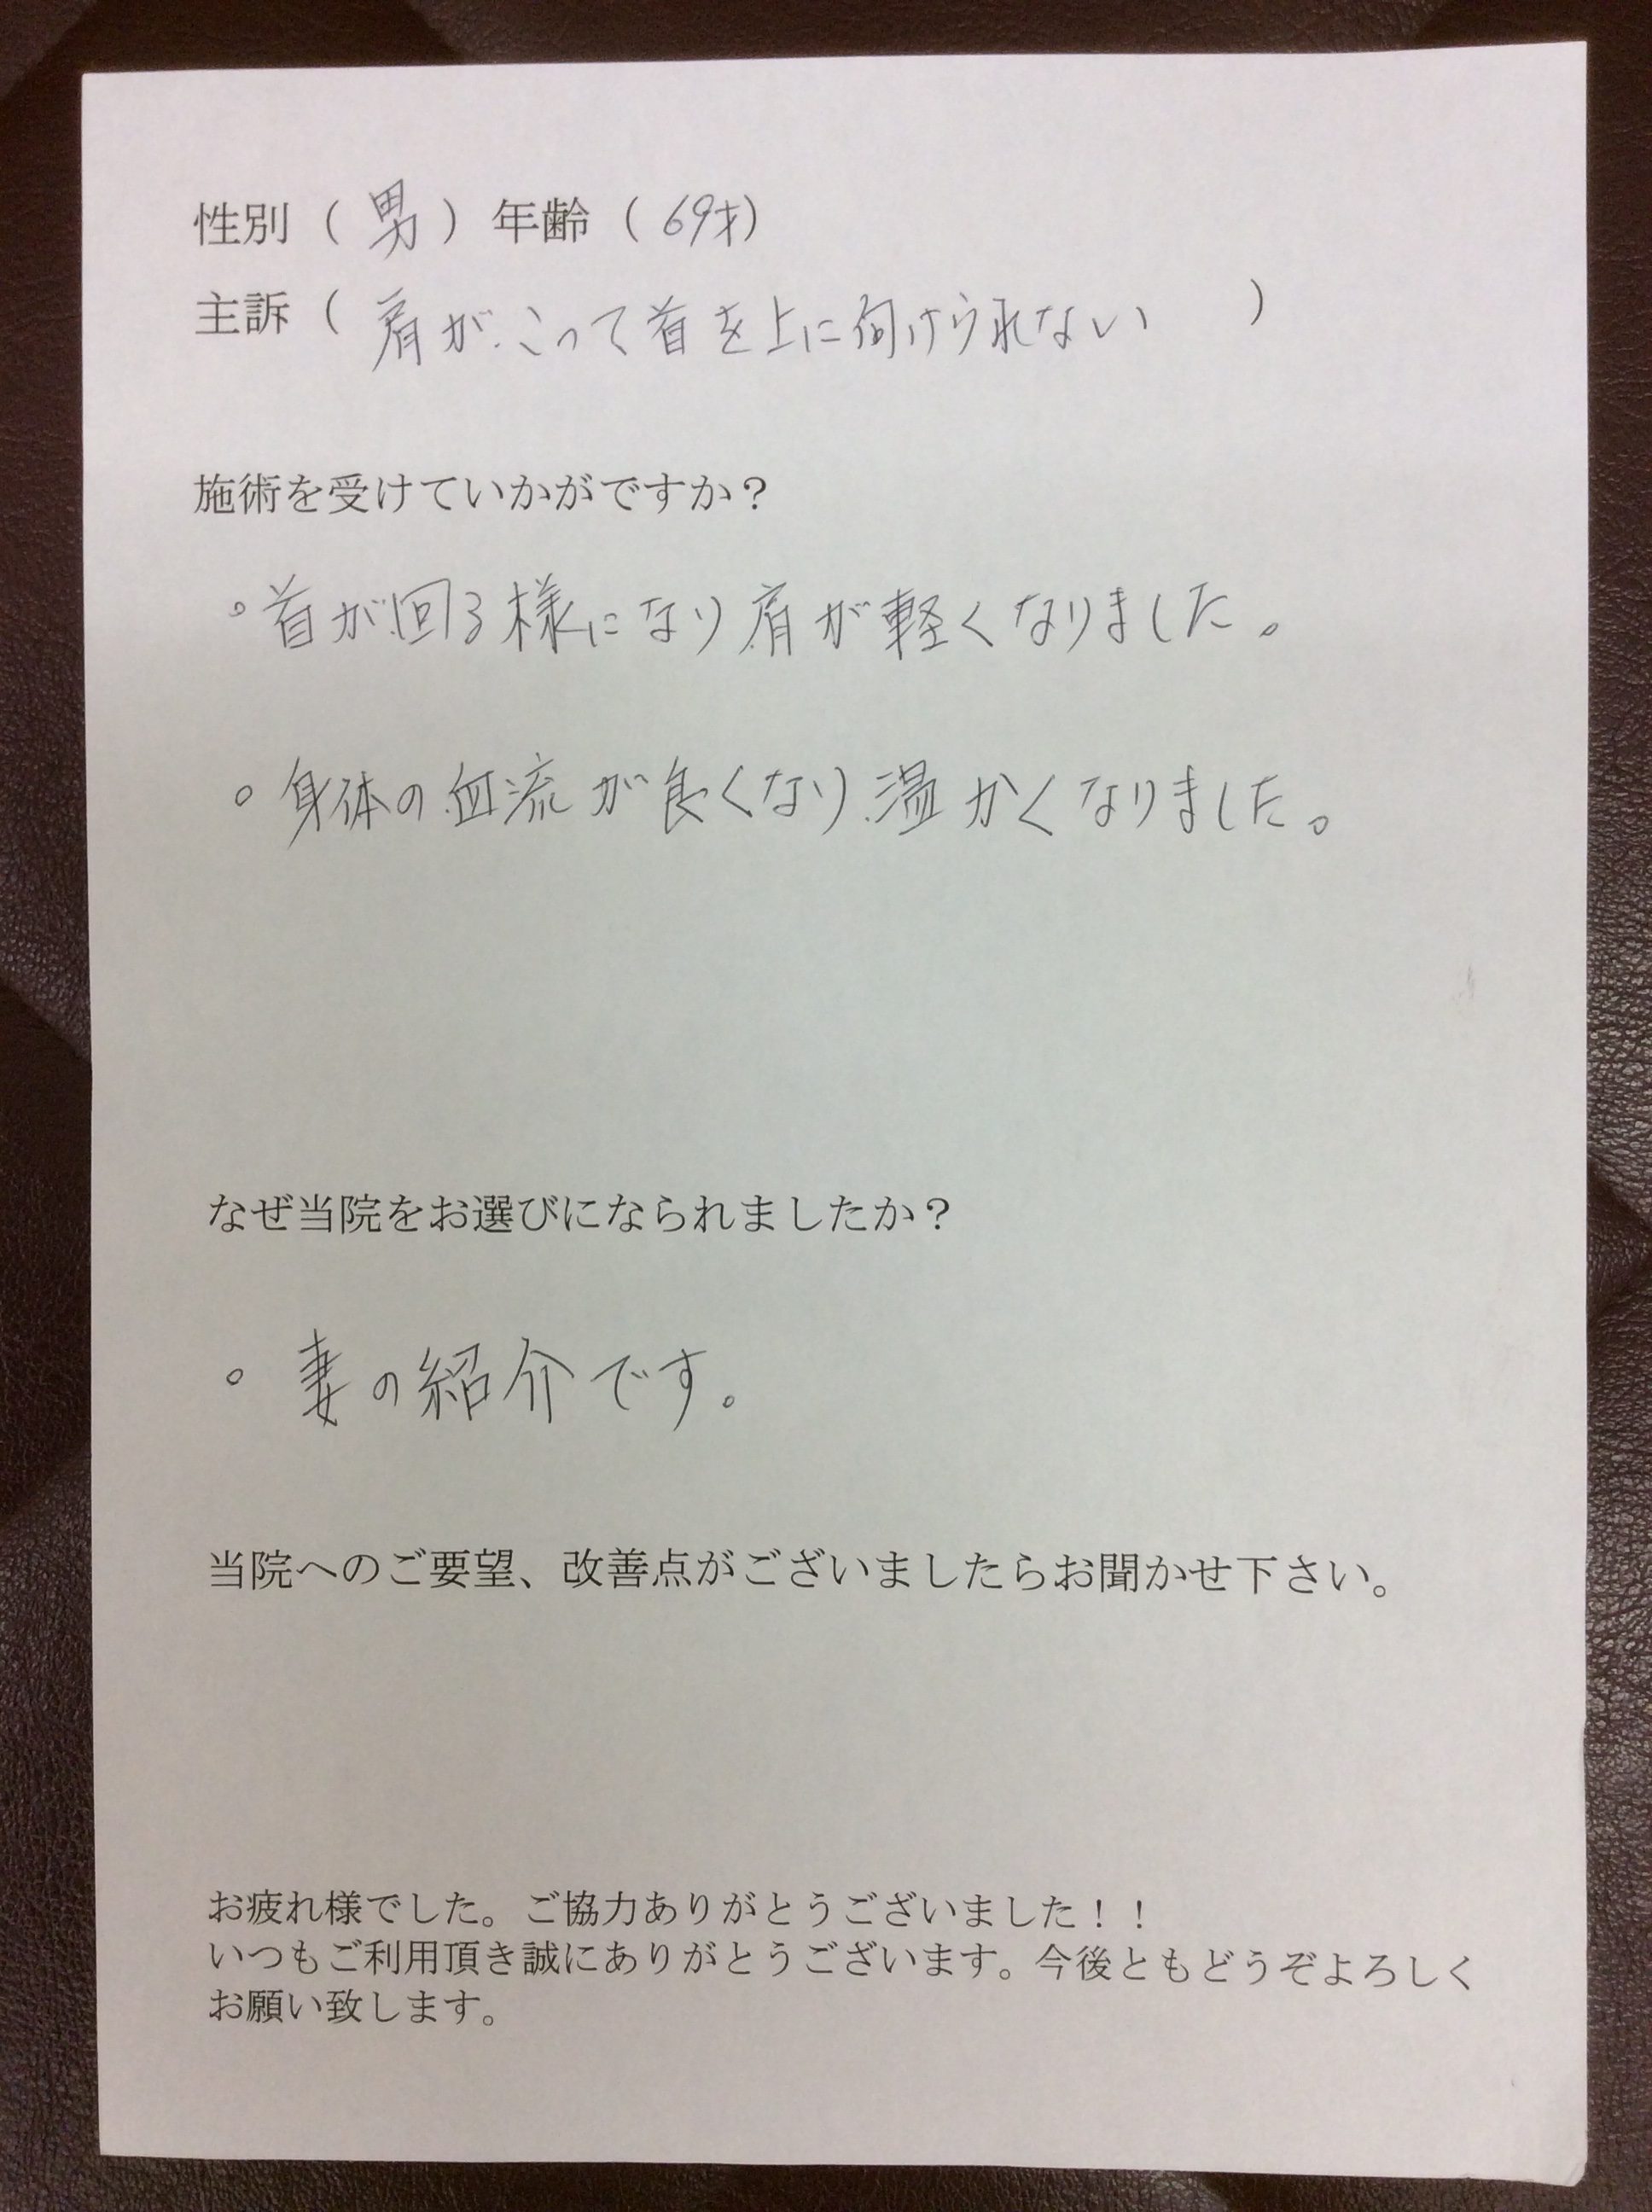 性別（ 男 ）年齢（ 69才）
主訴（ 肩がこって首を上に向けられない ）
施術を受けていかがですか？
○首が回る様になり肩が軽くなりました。
○身体の血流が良くなり温かくなりました。
なぜ当院をお選びになられましたか？
○妻の紹介です。
当院へのご要望、改善点がございましたらお聞かせ下さい。
お疲れ様でした。ご協力ありがとうございました！！
いつもご利用頂き誠にありがとうございます。今後ともどうぞよろしく
お願い致します。